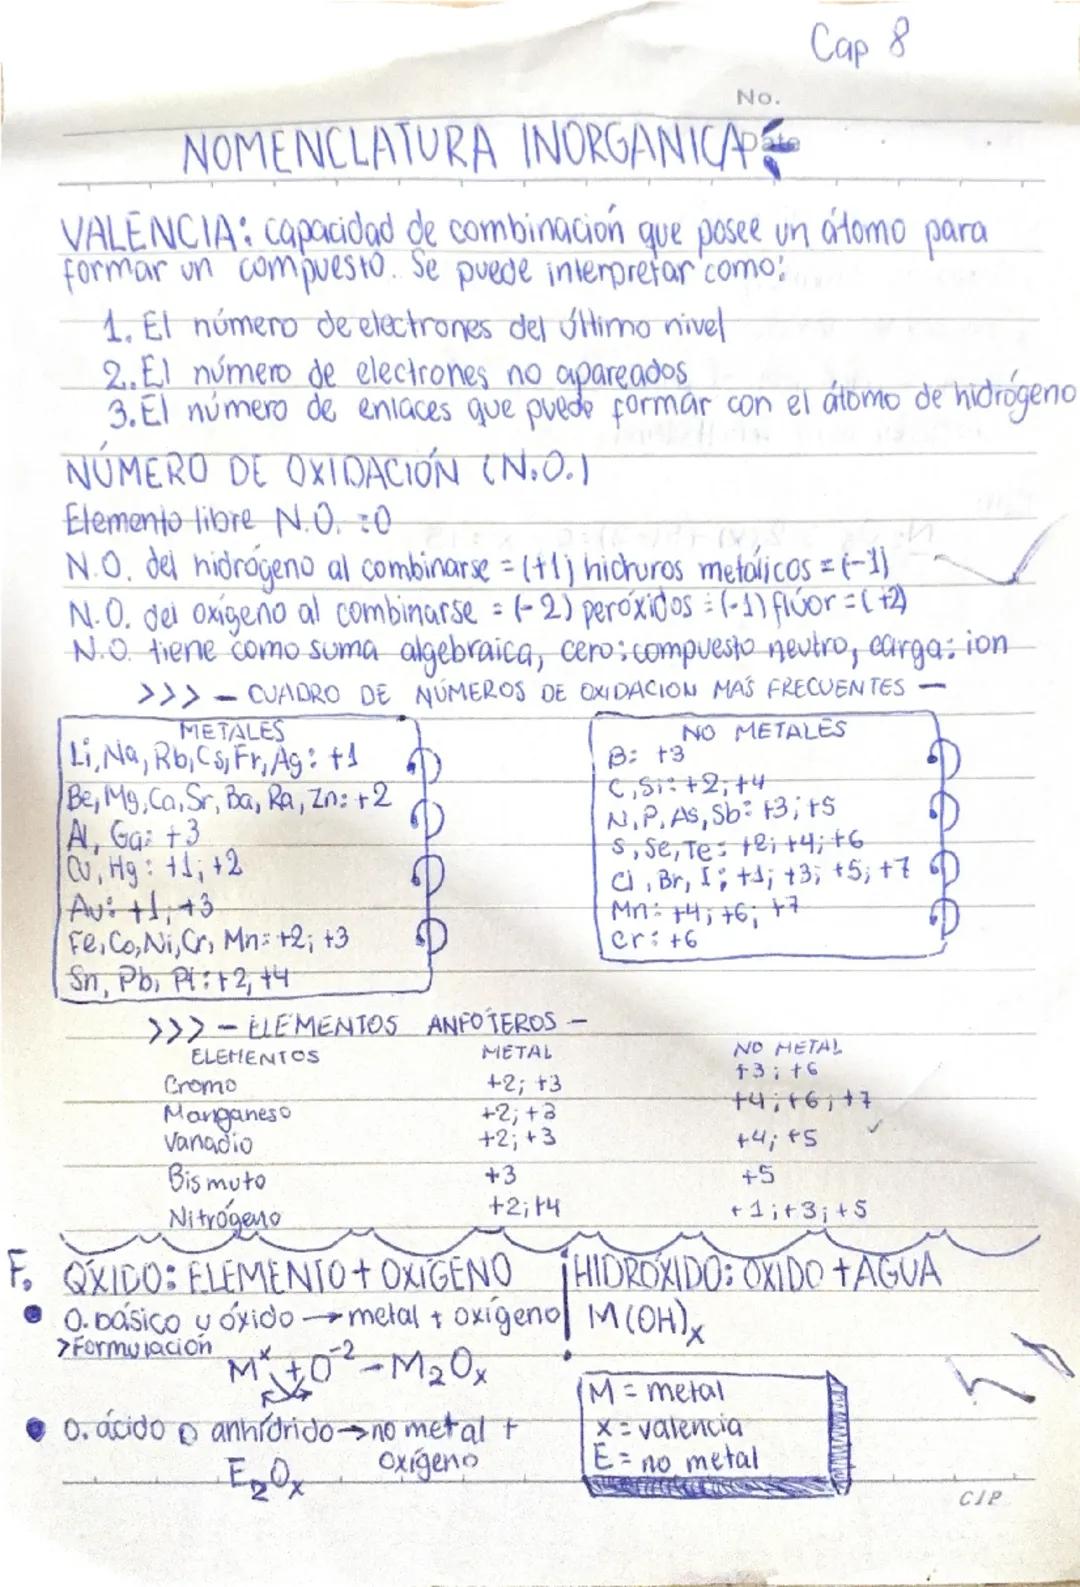 Cap 8
No.
NOMENCLATURA INORGANICA
Date
VALENCIA: capacidad de combinación que posee un átomo para
formar un compuesto. Se puede interpretar como:
1. El número de electrones del último nivel
2. El número de electrones no apareados
3. El número de enlaces que puede formar con el átomo de hidrógeno
NÚMERO DE OXIDACIÓN (N.O.)
Elemento libre N.O. = 0
N.O. del hidrógeno al combinarse = (+1) hidruros metálicos = (-1)
N.O. del oxígeno al combinarse = (-2) peróxidos = (-1) flúor = (+2)
N.O. tiene como suma algebraica, cero: compuesto neutro, carga: ion
>>> - CUADRO DE NÚMEROS DE OXIDACION MAS FRECUENTES -
METALES
Li, Na, Rb, Cs, Fr, Ag: +1
Be, Mg, Ca, Sr, Ba, Ra, Zn: +2
Al, Ga: +3
Cu, Hg: +1; +2
Au: +1; +3
Fe, Co, Ni, Cr, Mn: +2; +3
Sn, Pb, Pt: +2, +4
NO METALES
B: +3
C, Si: +2; +4
N, P, As, Sb: +3; +5
S, Se, Te: +2; +4; +6
Cl, Br, I: +1; +3; +5; +7
Mn: +4; +6; +7
Cr: +6
>>> - ELEMENTOS ANFÓTEROS -
ELEMENTOS METAL NO METAL
Cromo +2; +3 +3; +6
Manganeso +2; +3 +4; +6; +7
Vanadio +2; +3 +4; +5
Bismuto +3 +5
Nitrógeno +2; +4 +1; +3; +5
F. OXIDO: ELEMENTO + OXÍGENO
O. básico u óxido → metal + oxígeno
>Formulación
Mˣ + O⁻² - M₂Oₓ
O. ácido o anhídrido → no metal +
oxígeno
E₂Oₓ
HIDRÓXIDO: OXIDO + AGUA
M(OH)ₓ
M = metal
x = valencia
E = no metal
CIP